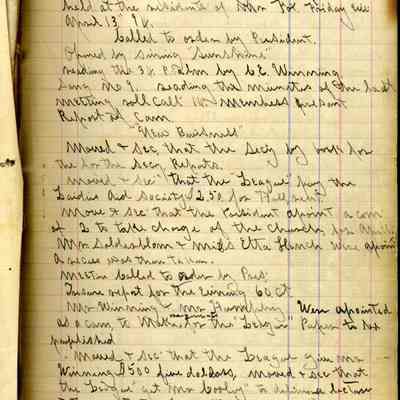 held at the residents of Mrs Fox Friday eve
April 13" 98.
Called to order by President.
Opened by sining "Sunshine"
reading the 34 Psalm by C.E. Winning
Song No 9. reading the minutes of the last
meeting roll Call members present
Report of Com
"New Buisness"
Moved & Sec that the Secy by book for
the for the Secy Reports.
moved & sec" that the "League" pay the
Ladies Aid Society 2.50 for Hall rent
Move & Sec that the President apoint a com
of 2 to take charge of the Church for April.
Mrs & Miss Etta were apoint
A recess was then taken.
Meetin Called to order by Pres:
Tresure repot for the evening 60 ct
Mr Winning & Mr Humphrey Were apointed
as a com to for the "League" Paper to be
published
Moved & sec" that the League give Mr
Winning $500 five dollars, moved & sec that
the League get Mr Cooley to lecture